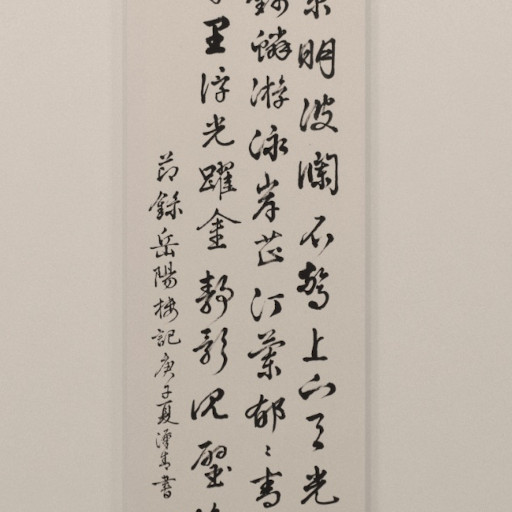 景明波瀾不驚上下天光
錦鱗游泳岸芷汀蘭郁郁青
里浮光躍金靜影沉璧
節錄岳陽樓記庚子夏書